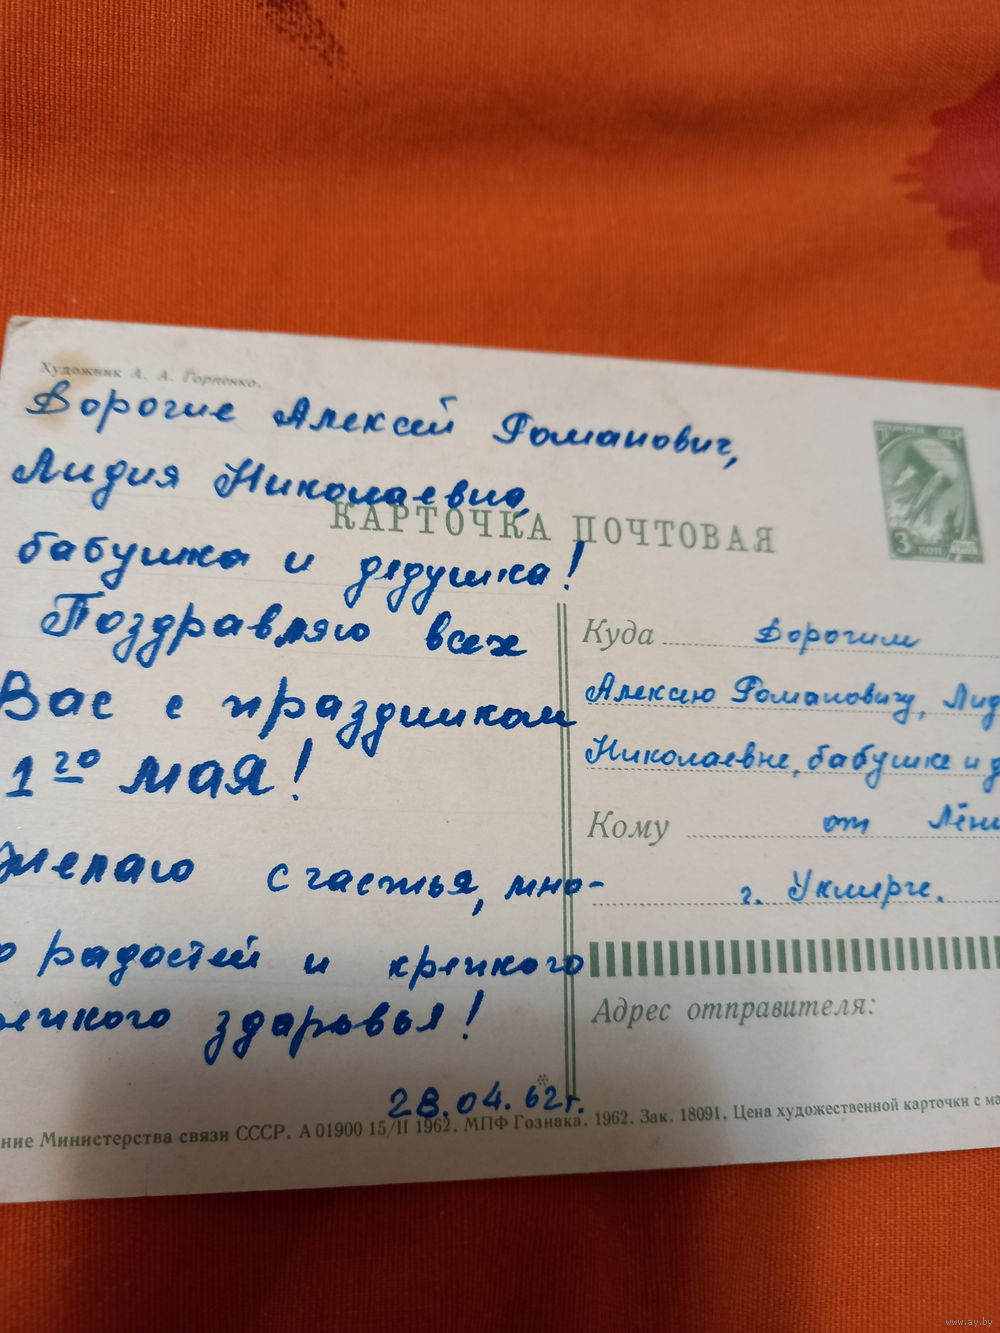 Художник А. А. Горпенко.
Дорогие Алексей Романович,
Лидия Николаевна,
бабушка и дедушка!
Поздравляю всех
Вас с праздником
1го мая!
желаю счастья, мно-
о радостей и крепкого
здоровья!
28.04.62г.
КАРТОЧКА ПОЧТОВАЯ
ПОЧТА СССР
3 КОП
Куда Дорогим
Алексею Романовичу, Лид
Николаевне, бабушке и д
Кому от Лёни
г.
Адрес отправителя:
ние Министерства связи СССР. А 01900 15/II 1962. МПФ Гознака. 1962. Зак. 18091. Цена художественной карточки с ма
www.ay.by